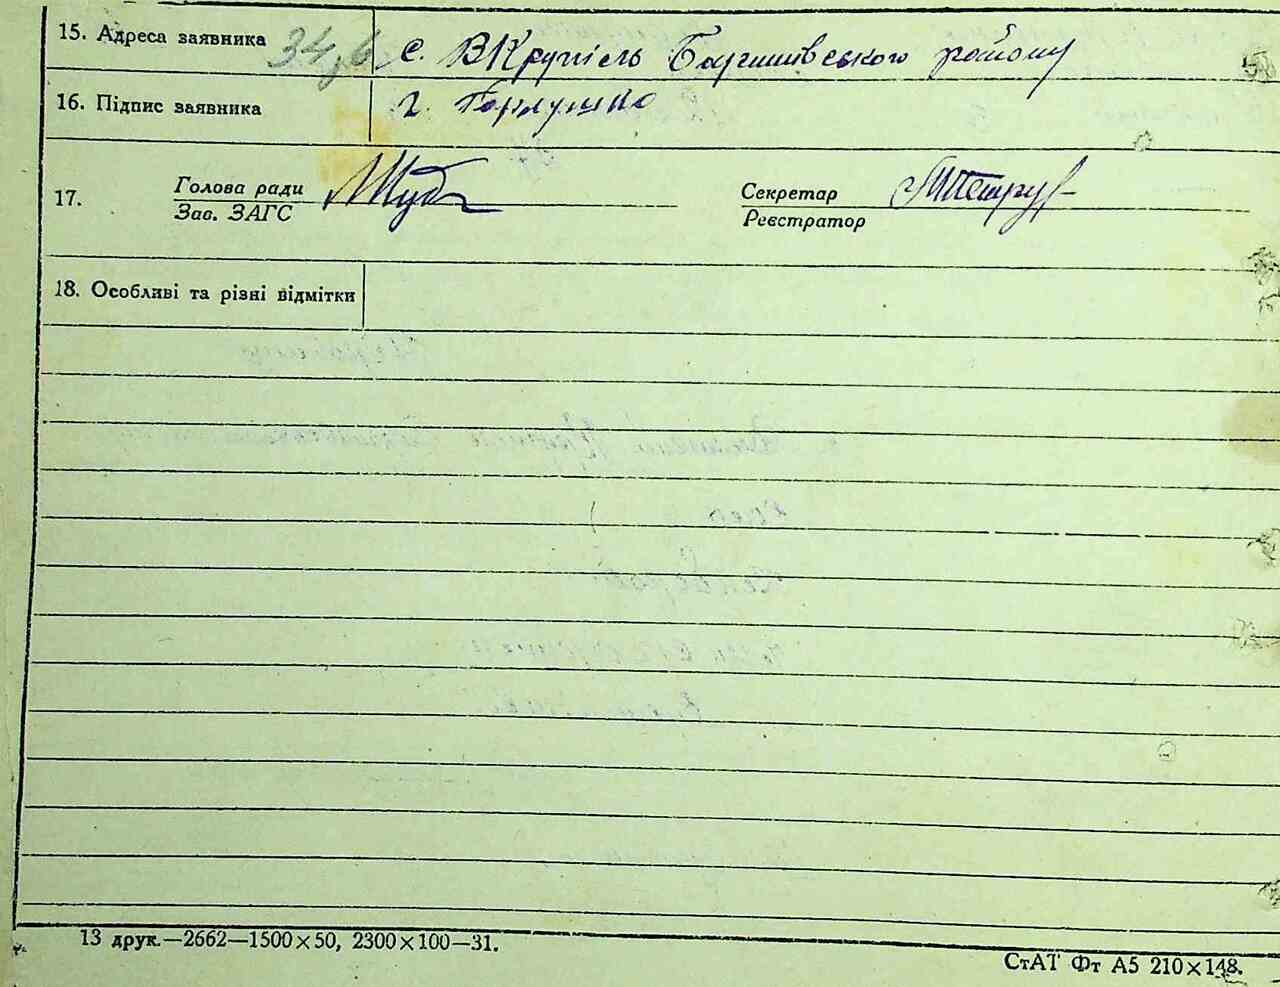 15. Адреса заявника 34,6 с. ВКрупіль Баришівського району
16. Підпис заявника
17. Голова ради Секретар
Зав. ЗАГС Реєстратор
18. Особливі та різні відмітки
13 друк.—2662—1500×50, 2300×100—31.
СтАТ Фт А5 210×148.